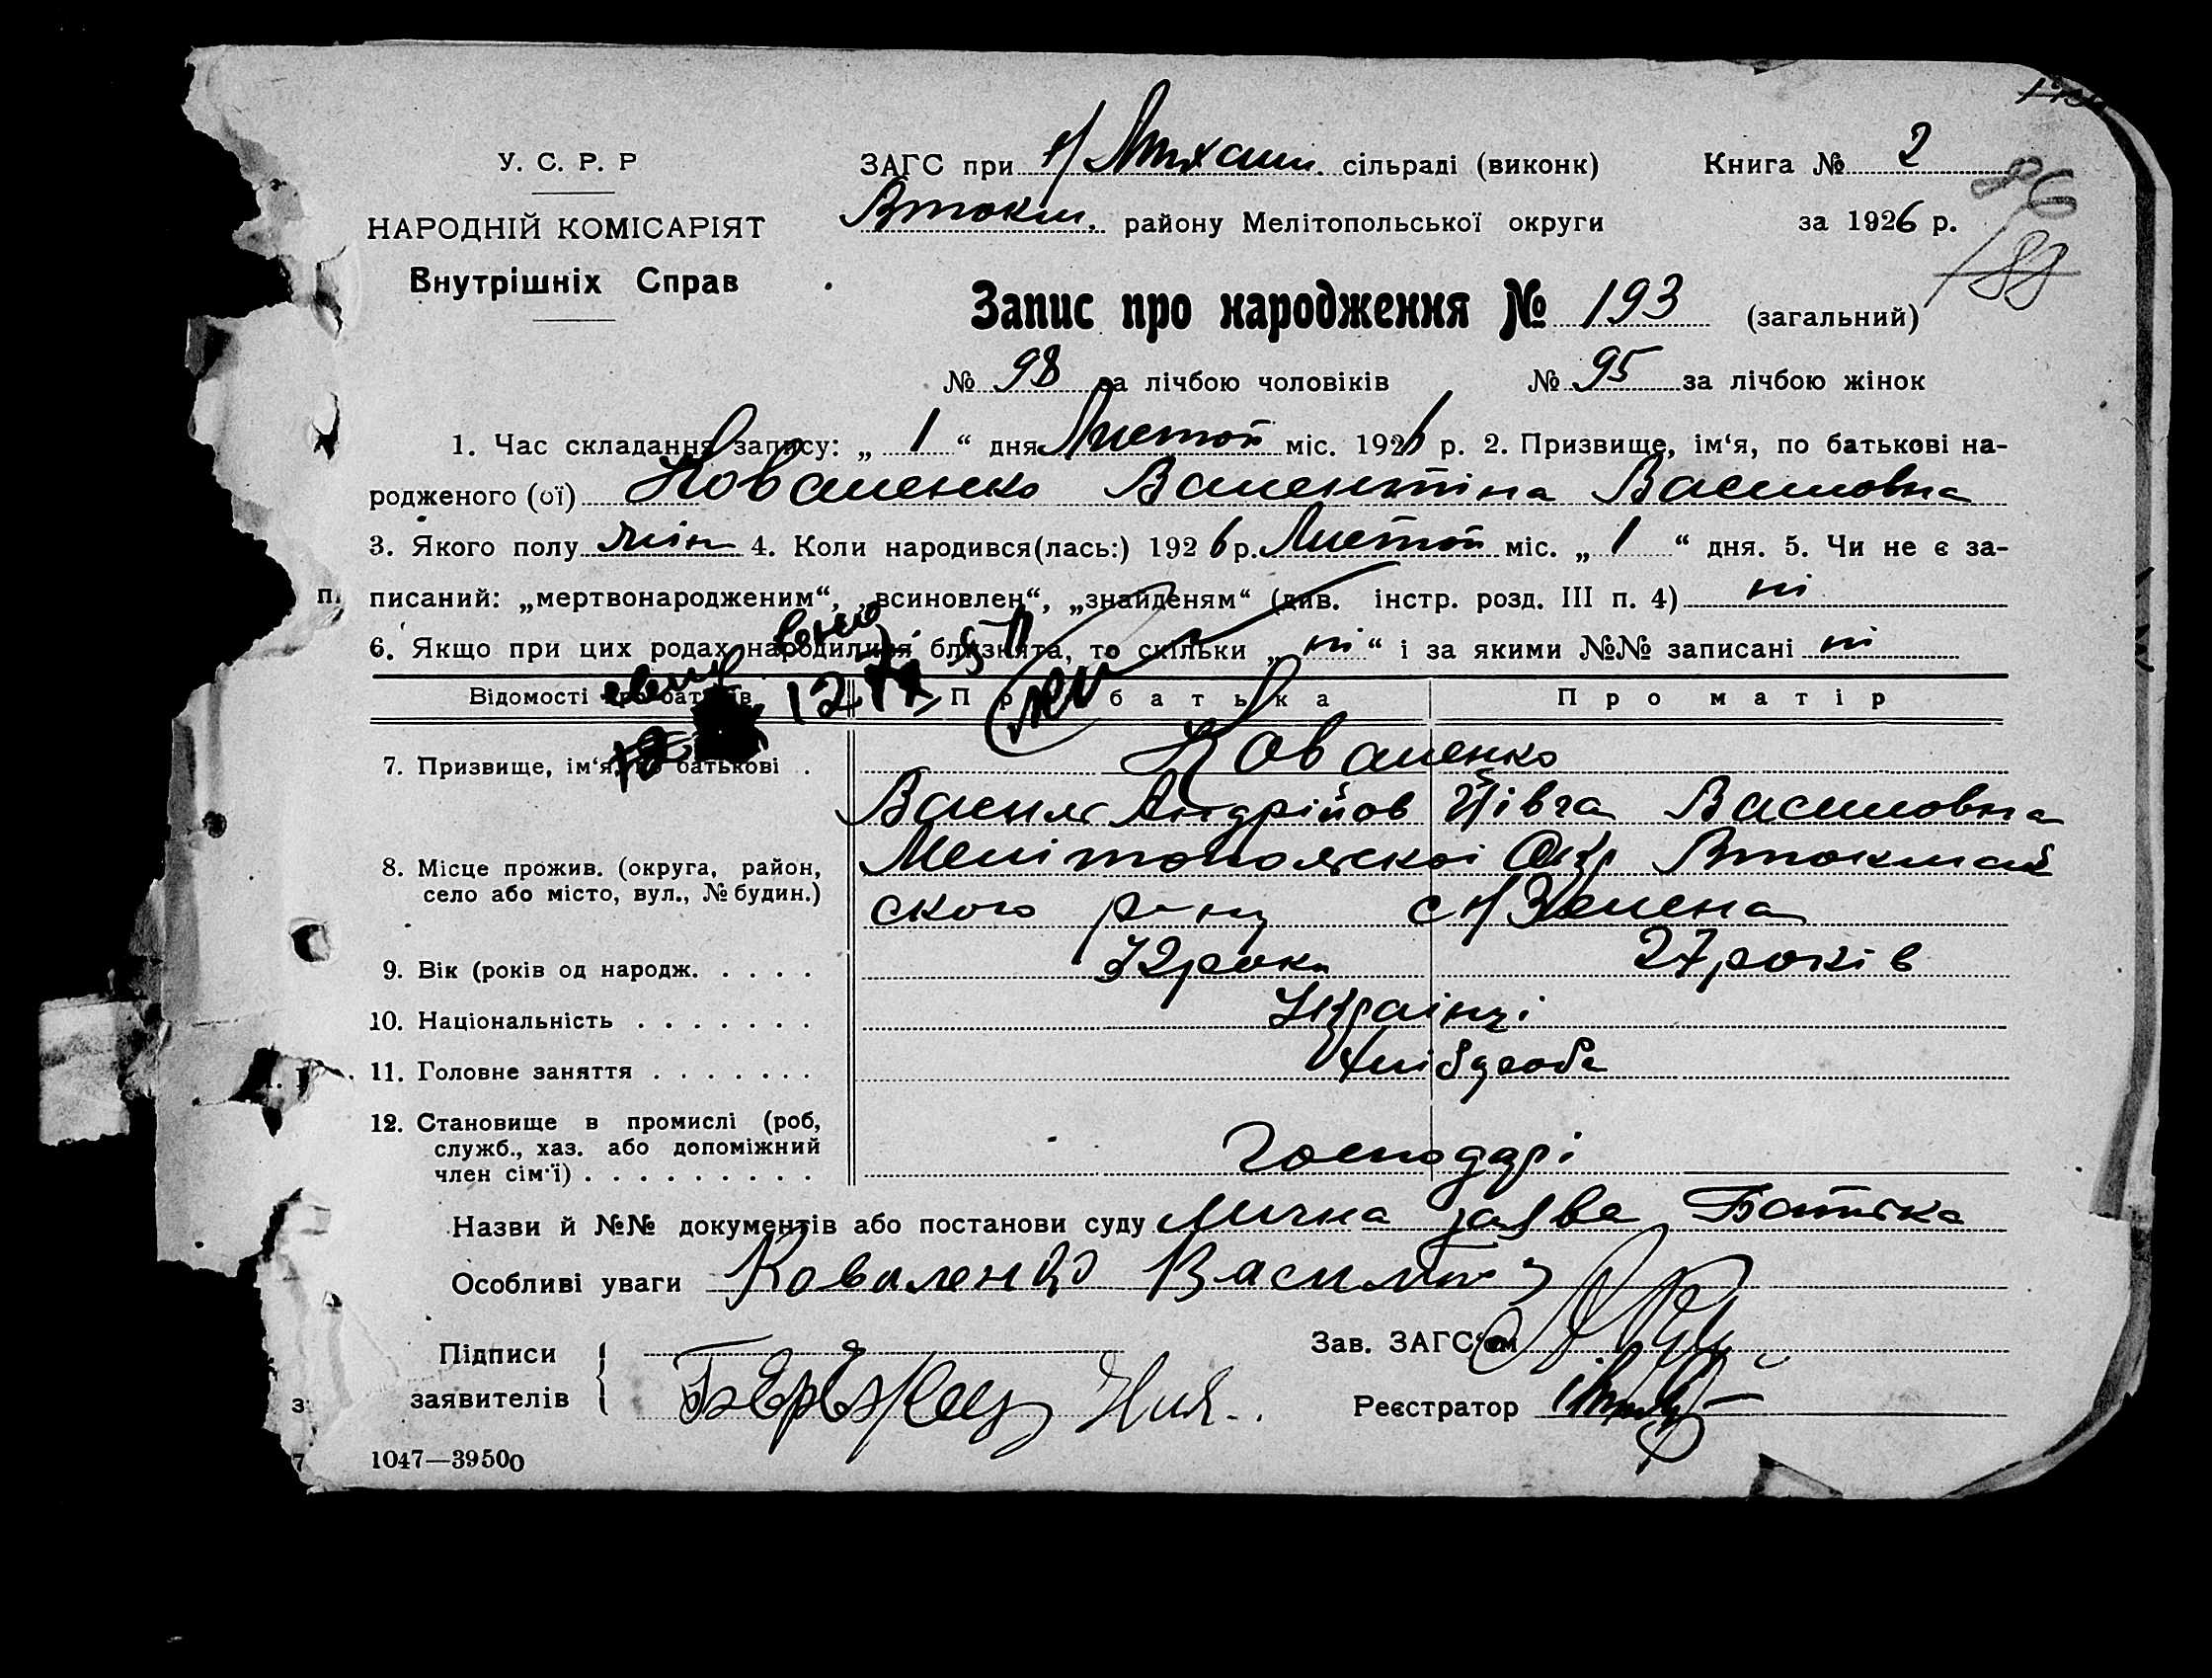 У. С. Р. Р
НАРОДНІЙ КОМІСАРІЯТ
Внутрішніх Справ
ЗАГС при Н/ сільраді (виконк) Книга № 2
Втокм. району Мелітопольської округи за 1926 р.
86
188
Запис про народження № 193 (загальний)
№ 98 за лічбою чоловіків № 95 за лічбою жінок
1. Час складання запису: „ 1 “ дня Листоп міс. 1926 р. 2. Призвище, ім‘я, по батькові на-
родженого (ої) Коваленко Валентіна Василовна
3. Якого полу жін 4. Коли народився(лась:) 1926 р. Листоп міс. „ 1 “ дня. 5. Чи не є за-
писаний: „мертвонародженим“, „всиновлен“, „знайденям“ (див. інстр. розд. III п. 4) ні
6. Якщо при цих родах народилися близнята, то скільки „ ні “ і за якими №№ записані ні
Відомості про батьків Про батька Про матір
7. Призвище, ім‘я, по батькові . Коваленко
Василь Андрійов Йівга Василовна
8. Місце прожив. (округа, район, село або місто, вул., № будин.) Мелітопольскоі Окр Втокмай
ского р-ну с Н/Зелена
9. Вік (років од народж. . . . . 32 роки 27 років
10. Національність . . . . . . . Украінці
11. Головне заняття . . . . . . . Хлібороба
12. Становище в промислі (роб,
служб., хаз. або допоміжний
член сім‘ї) . . . . . . . . . Господарі
Назви й №№ документів або постанови суду Лична заява Батька
Особливі уваги Коваленко Василь
Підписи
заявителів
Зав. ЗАГС‘ом
Реєстратор
1047—39500